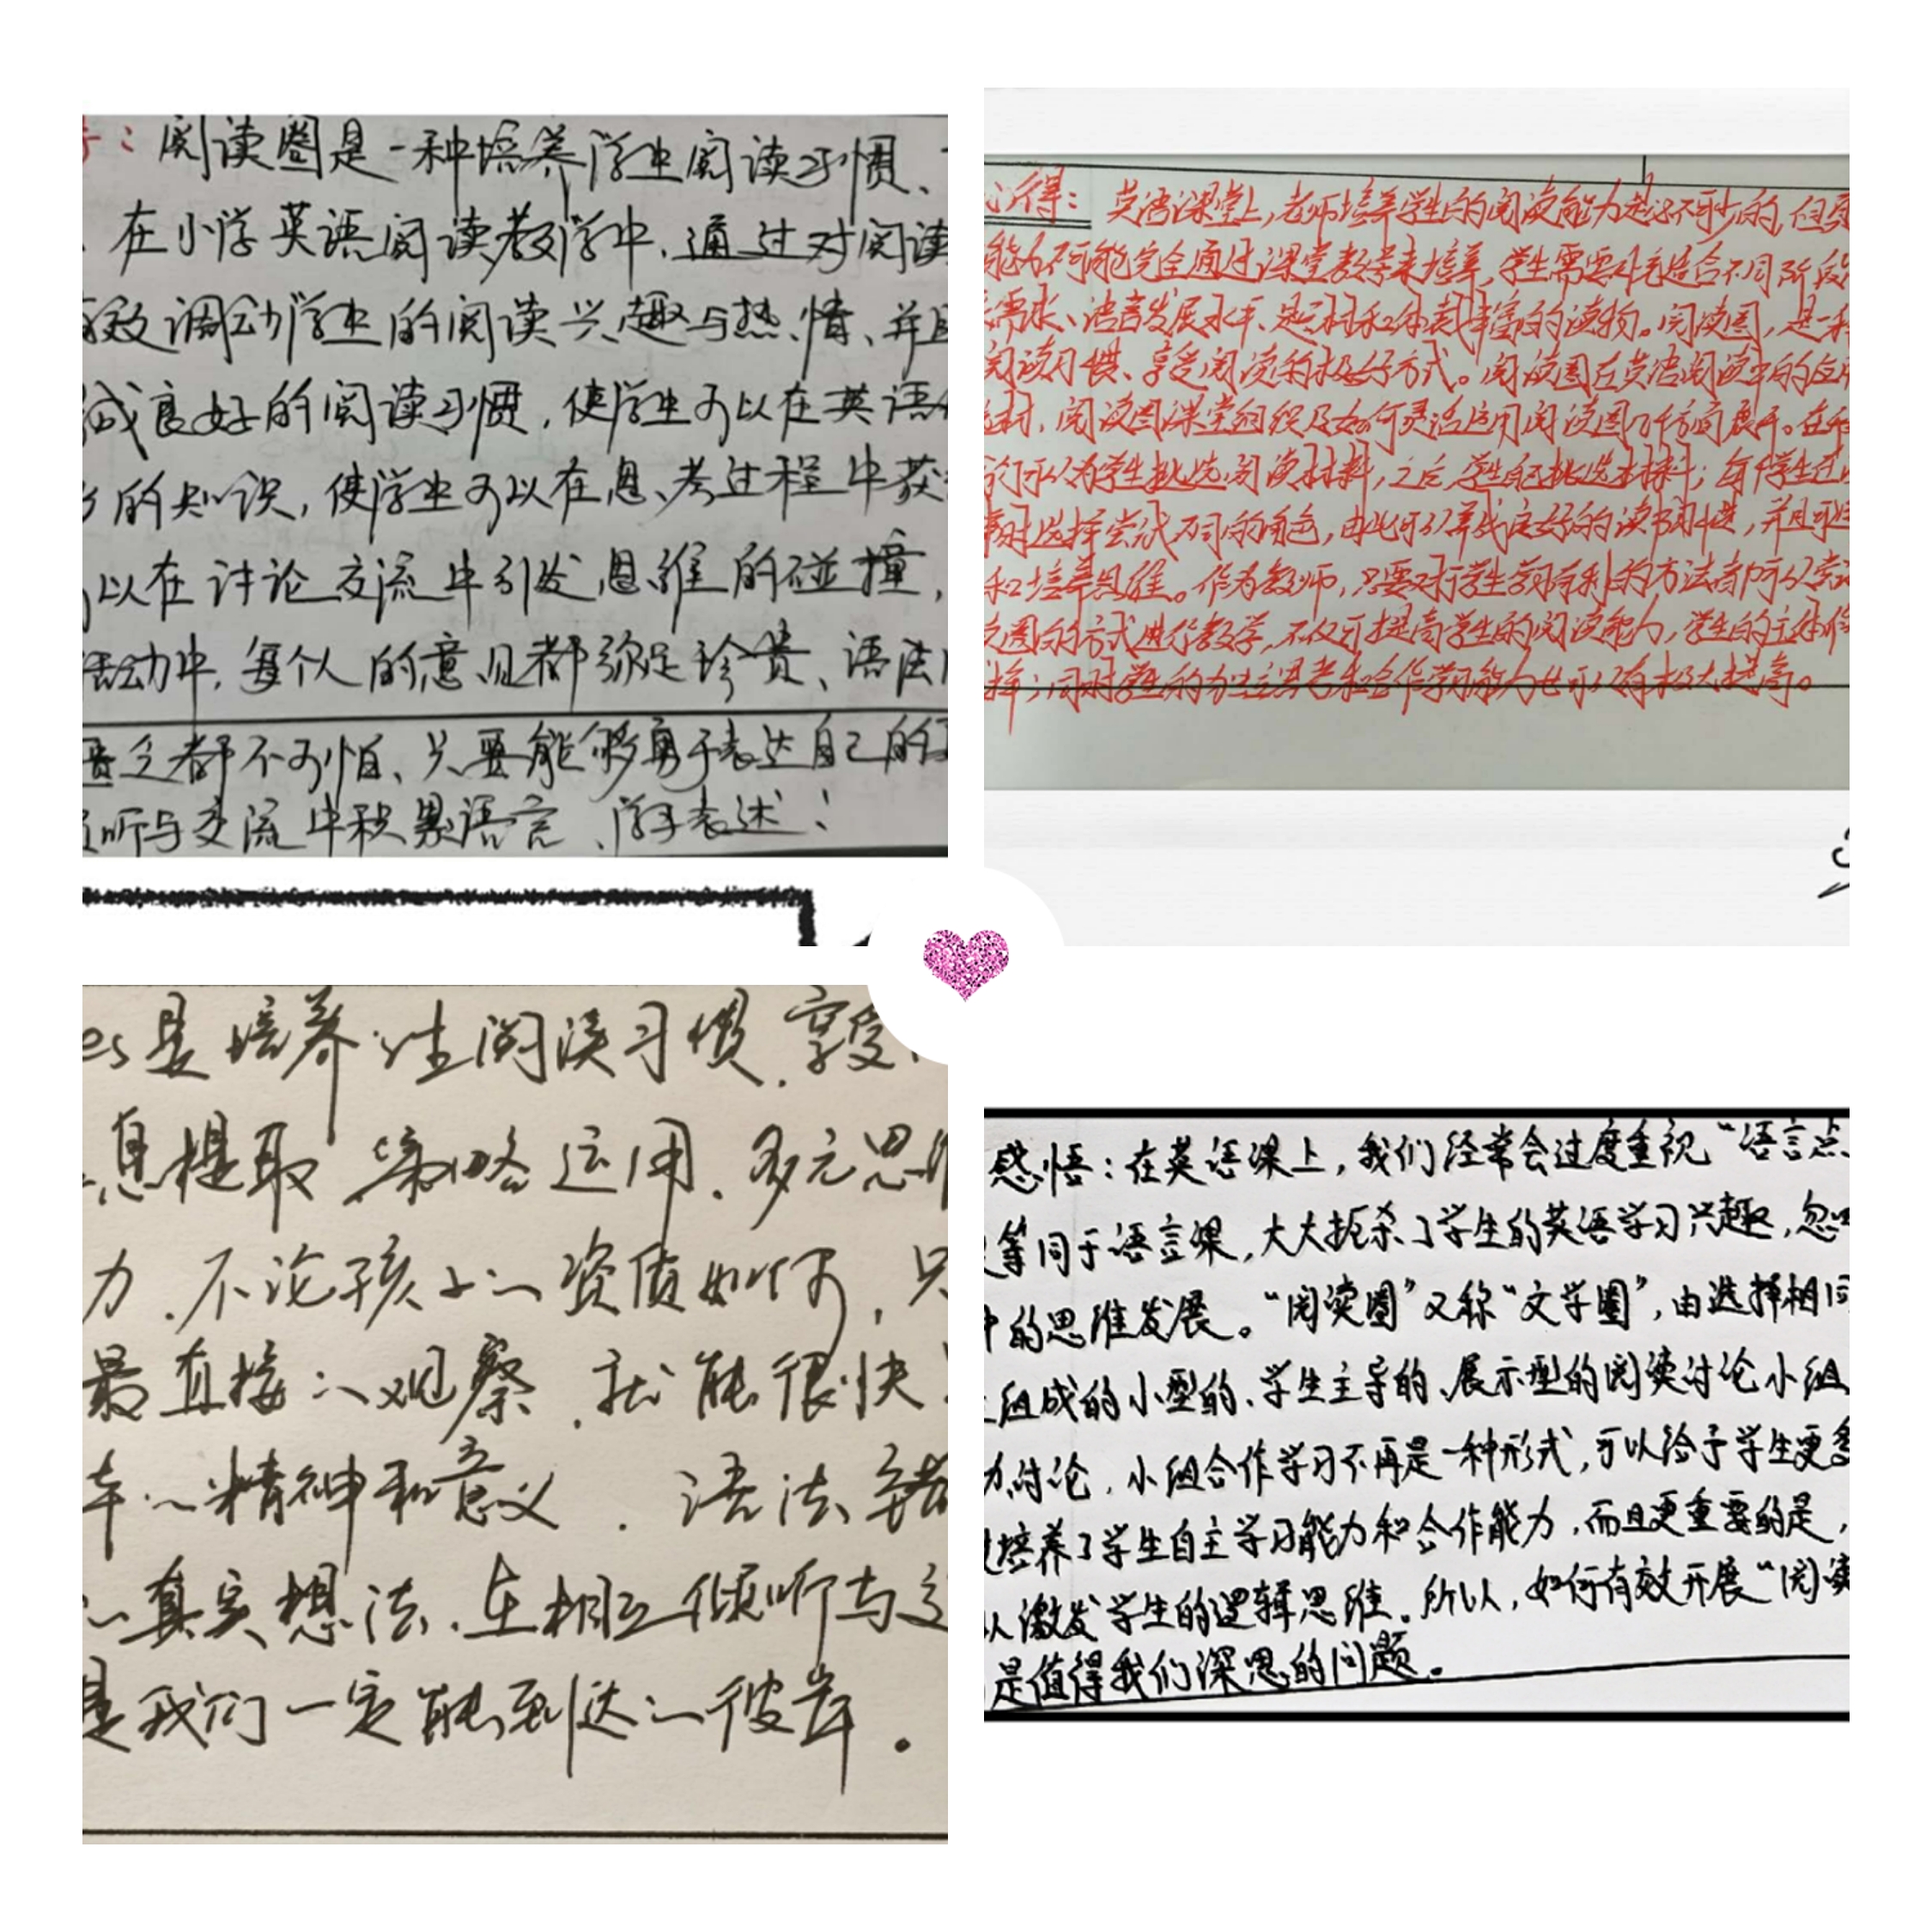 ：阅读圈是一种培养学生阅读习惯、
在小学英语阅读教学中，通过对阅读
效调动学生的阅读兴趣与热情、并且
成良好的阅读习惯，使学生可以在英语
的知识，使学生可以在思考过程中获
以在讨论交流中引发思维的碰撞，
活动中，每个人的意见都弥足珍贵、语法
匮乏都不可怕、只要能够勇于表达自己的
听与交流中积累语言、学习表述！
心得：英语课堂上，老师培养学生的阅读能力是必不可少的，但
能力不可能完全通过课堂教学来培养，学生需要补充适合不同阶段
需求、语言发展水平、题材和体裁丰富的读物。阅读圈，是一种
阅读习惯、享受阅读的极好方式。阅读圈在英语阅读中的应用
选材，阅读圈课堂组织及如何灵活运用阅读圈几个方面展开。在
可以为学生挑选阅读材料，之后学生自己挑选材料；每个学生
选择尝试不同的角色，由此可以养成良好的读书习惯，并且可
和培养思维。作为教师，只要对于学生学习有利的方法都可以尝试
圈的方式进行教学，不仅可提高学生的阅读能力，学生的主体
择；同时学生的独立思考和合作学习能力也可以有极大提高。
es是培养学生阅读习惯，享受
息提取，策略运用，多元思维
力，不论孩子的资质如何，只
最直接的观察，就能很快
的精神和意义，语法错
的真实想法，在相互倾听与交
是我们一定能到达的彼岸。
感悟：在英语课上，我们经常会过度重视“语言点
等同于语言课，大大扼杀了学生的英语学习兴趣，忽
中的思维发展。“阅读圈”又称“文学圈”，由选择相同
组成的小型的、学生主导的、展示型的阅读讨论小组
讨论，小组合作学习不再是一种形式，可以给予学生更多
培养了学生自主学习能力和合作能力，而且更重要的是，
以激发学生的逻辑思维。所以，如何有效开展“阅读
是值得我们深思的问题。